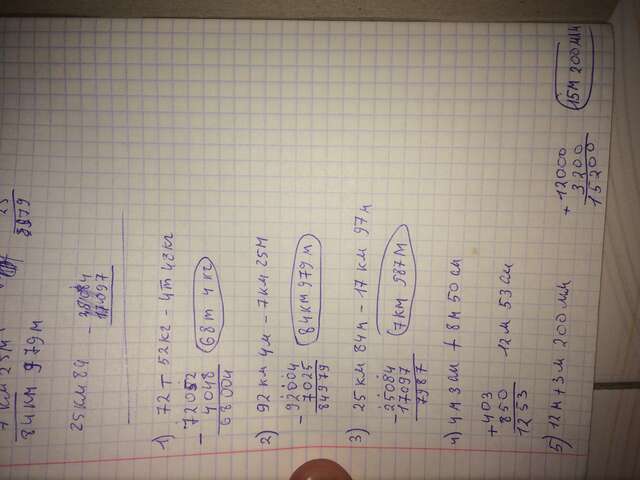 7 км 25 м
84 км 979 м
25
8979
25 км 84
- 25084
17097
1) 72 т 52 кг - 4 т 48 кг
- 72052
4048
68004
68 т 4 кг
2) 92 км 4 м - 7 км 25 м
- 92004
7025
84979
84 км 979 м
3) 25 км 84 м - 17 км 97 м
- 25084
17097
7987
7 км 587 м
4) 4 м 3 см + 8 м 50 см
+ 403
850
1253
12 м 53 см
5) 12 м + 3 м 200 мм
+ 12000
3200
15200
15 м 200 мм